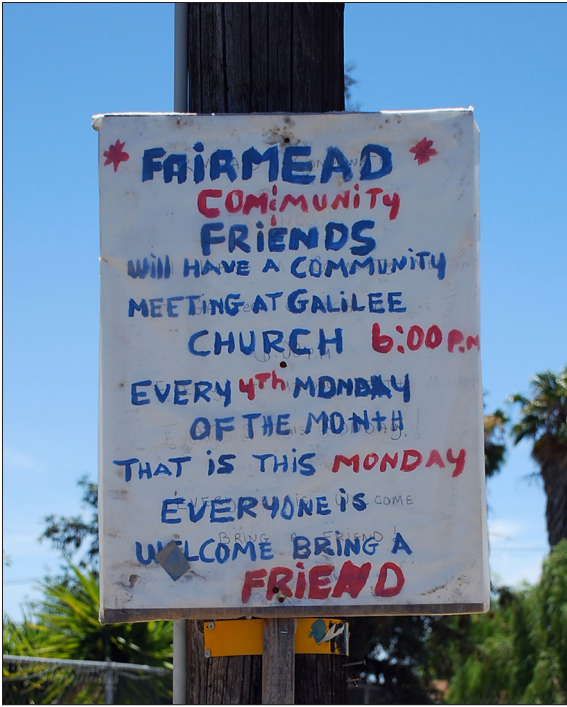 FAiRMEAD
COMiMUNiTY
FRiENDS
Will HAVE A COMMUNiTY
MEETING AT GALiLEE
CHURCH 6:00 P.M
EVERY 4Th MONDAY
OF THE MONtH
THAT iS THiS MONDAY
EVERYONE iS
WELCOME BRiNG A
FRiEND